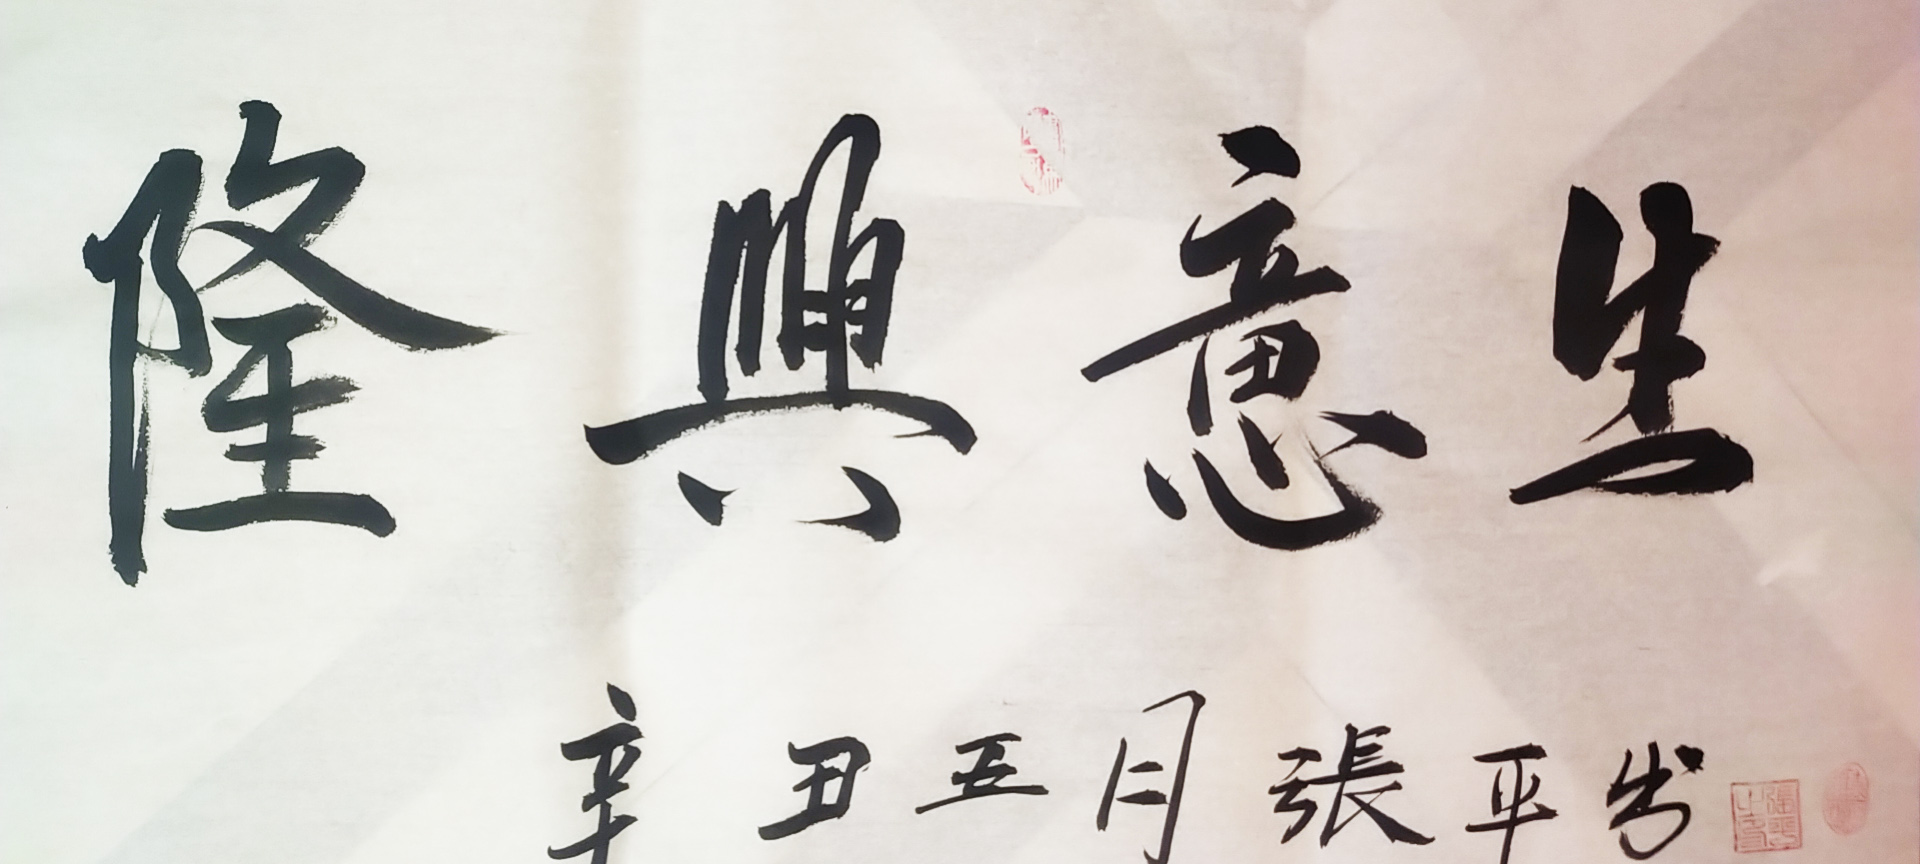 生意興隆
辛丑五月張平书